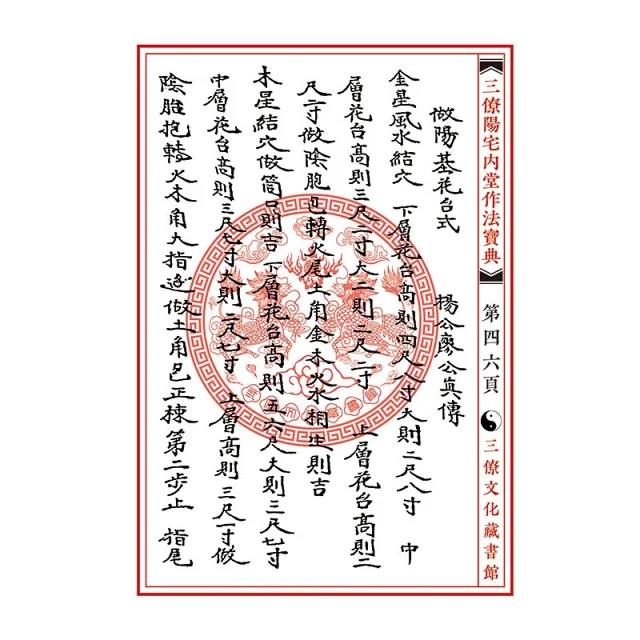 《三僚陽宅內堂作法寶典》 第四六頁 三僚文化藏書館
做陽基花台式 楊公廖公真傳
金星風水結穴 下層花台高則四尺一寸大則二尺八寸 中
層花台高則三尺二寸大二則二尺二寸 上層花台高則二
尺二寸做陰胞包轉火尾土角金木火水相生則吉
木星結穴做筒口則吉 下層花台高則五六尺大則三尺七寸
中層花台高則三尺七寸大則二尺七寸 上層高則三尺一寸做
陰胞抱轉火木角大指邊做土角包正棟第二步止 指尾